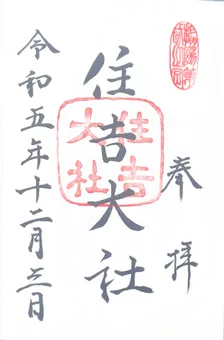 奉拝
住吉大社
住吉大社
令和五年十二月三日